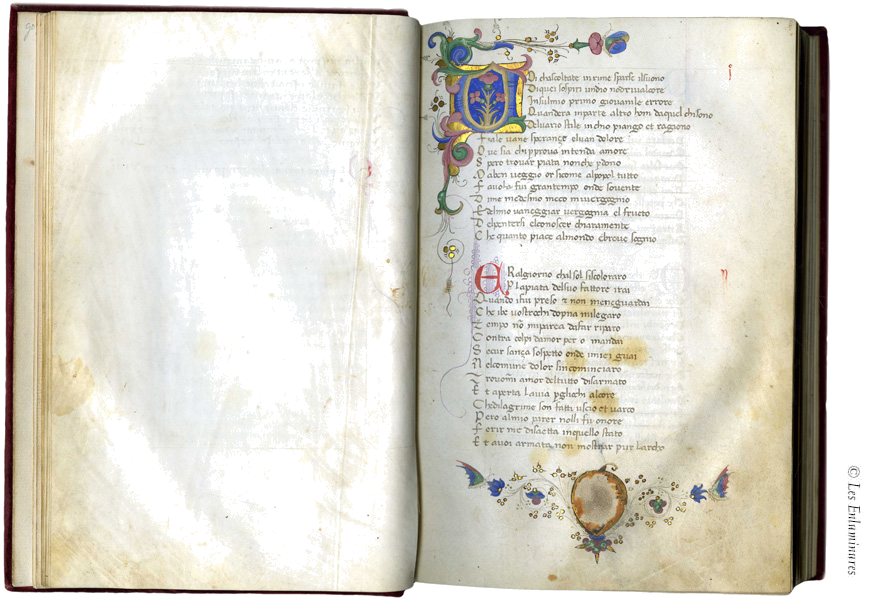 Oi chascoltate in rime sparse il suono
Di quei sospiri undio nodriva l core
In sul mio primo giovanile errore
Quandera in parte altro hom da quel chi sono
Del vario stile in chio piango et ragiono
Fra le vane speranze el van dolore
Ove sia chi per prova intenda amore
Spero trovar piata non che perdono
Ma ben veggio or si come al popol tutto
Favola fui gran tempo onde sovente
Di me medesmo meco mi vergogno
Et del mio vaneggiar vergogna el frutto
El pentersi el conoscer chiaramente
Che quanto piace al mondo e breve sogno
ERal giorno chal sol si scoloraro
Per la piata del suo fattore i rai
Quando i fui preso et non me ne guardai
Che i be vostrochi dopna mi legaro
Tempo non mi parea da far riparo
Contra colpi damor pero mandai
Secur sanza sospetto onde i miei guai
Nel comune dolor sincominciaro
Trovommi amor del tutto disarmato
Et aperta la via per gliochi al core
Che di lagrime son fatti uscio et varco
Pero al mio parer non li fu onore
Ferir me di saetta in quello stato
Et a voi armata non mostrar pur larcho
© Les Enluminures